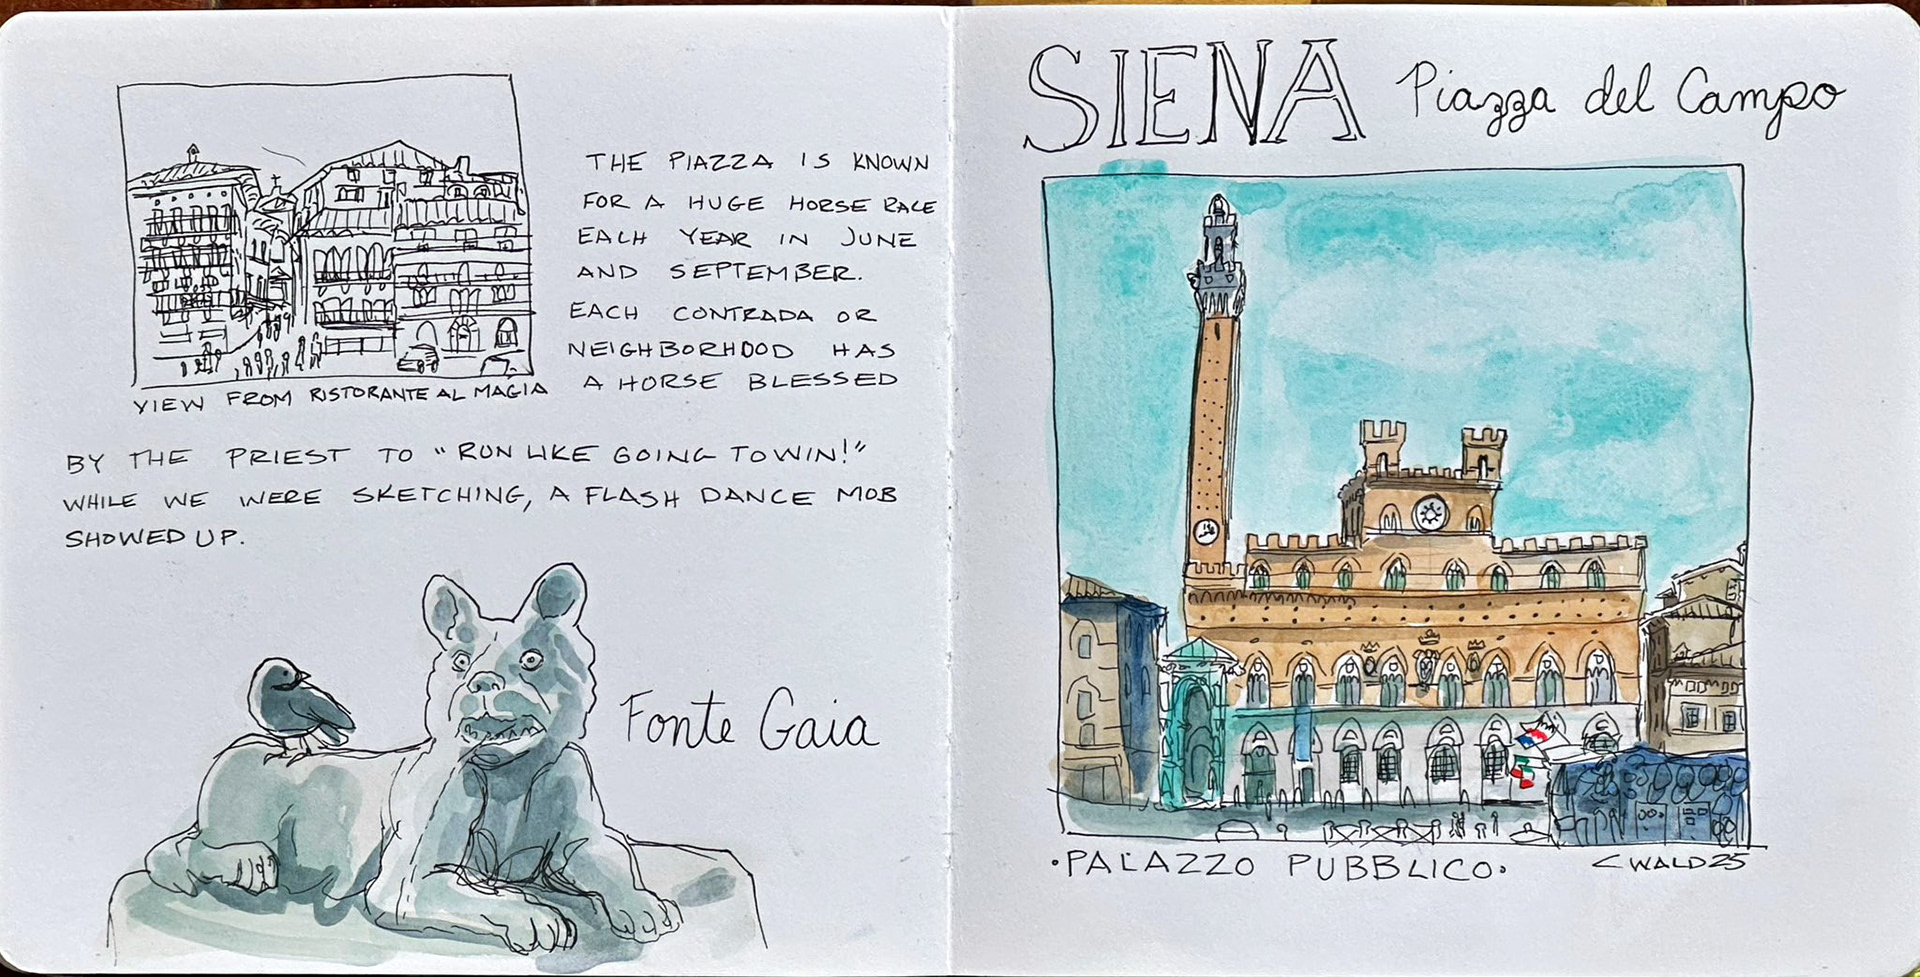 VIEW FROM RISTORANTE AL MAGIA
THE PIAZZA IS KNOWN
FOR A HUGE HORSE RACE
EACH YEAR IN JUNE
AND SEPTEMBER.
EACH CONTRADA OR
NEIGHBORHOOD HAS
A HORSE BLESSED
BY THE PRIEST TO "RUN LIKE GOING TO WIN!"
WHILE WE WERE SKETCHING, A FLASH DANCE MOB
SHOWED UP.
Fonte Gaia
SIENA Piazza del Campo
•PALAZZO PUBBLICO•
CWALD25